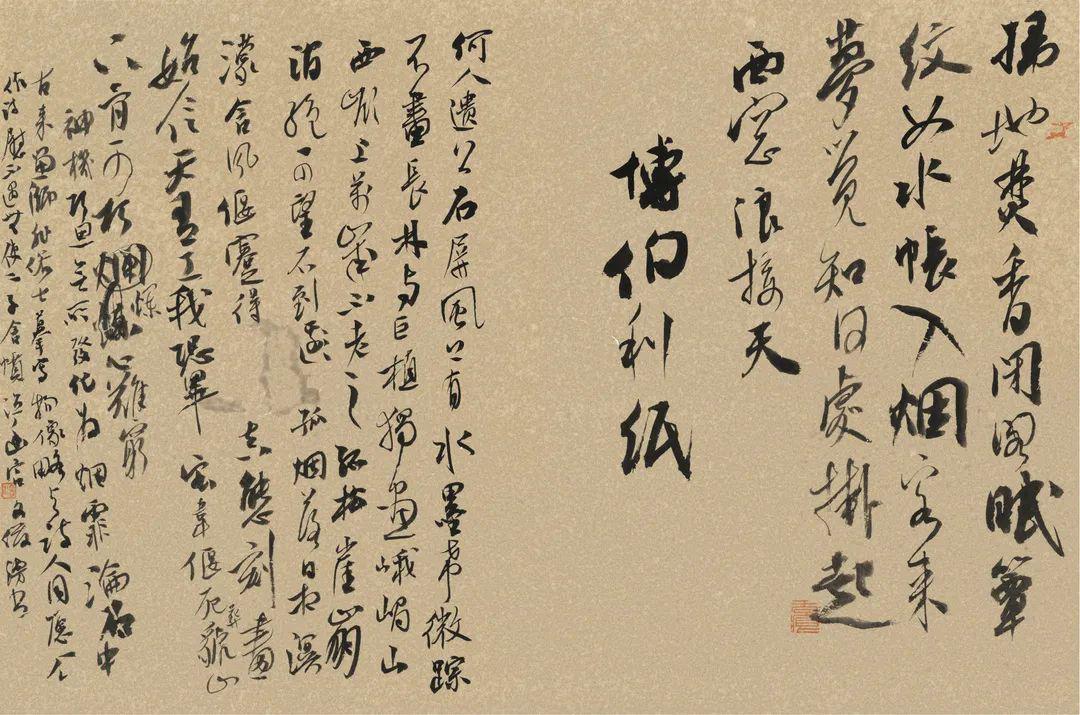 掃地焚香閉閣眠簟
紋如水帳入烟客来
夢覺知何處掛起
西窓浪接天
博伯利紙
何人遺公石屏風上有水墨希微踪
不畫長林与巨植獨畫峨嵋山
西嶺上萬歲不老之孤松崖崩
澗絶可望不到孤烟落日相溟
濛含風偃蹇得真態刻畫
始信天有工我恐畢宏韋偃死葬虢山
下骨可朽爛心難窮
神機巧思無所發化为烟霏淪石中
古来畫師非俗士摹寫物像略与詩人同愿公
作詩慰不遇無使二子含憤泣幽宫